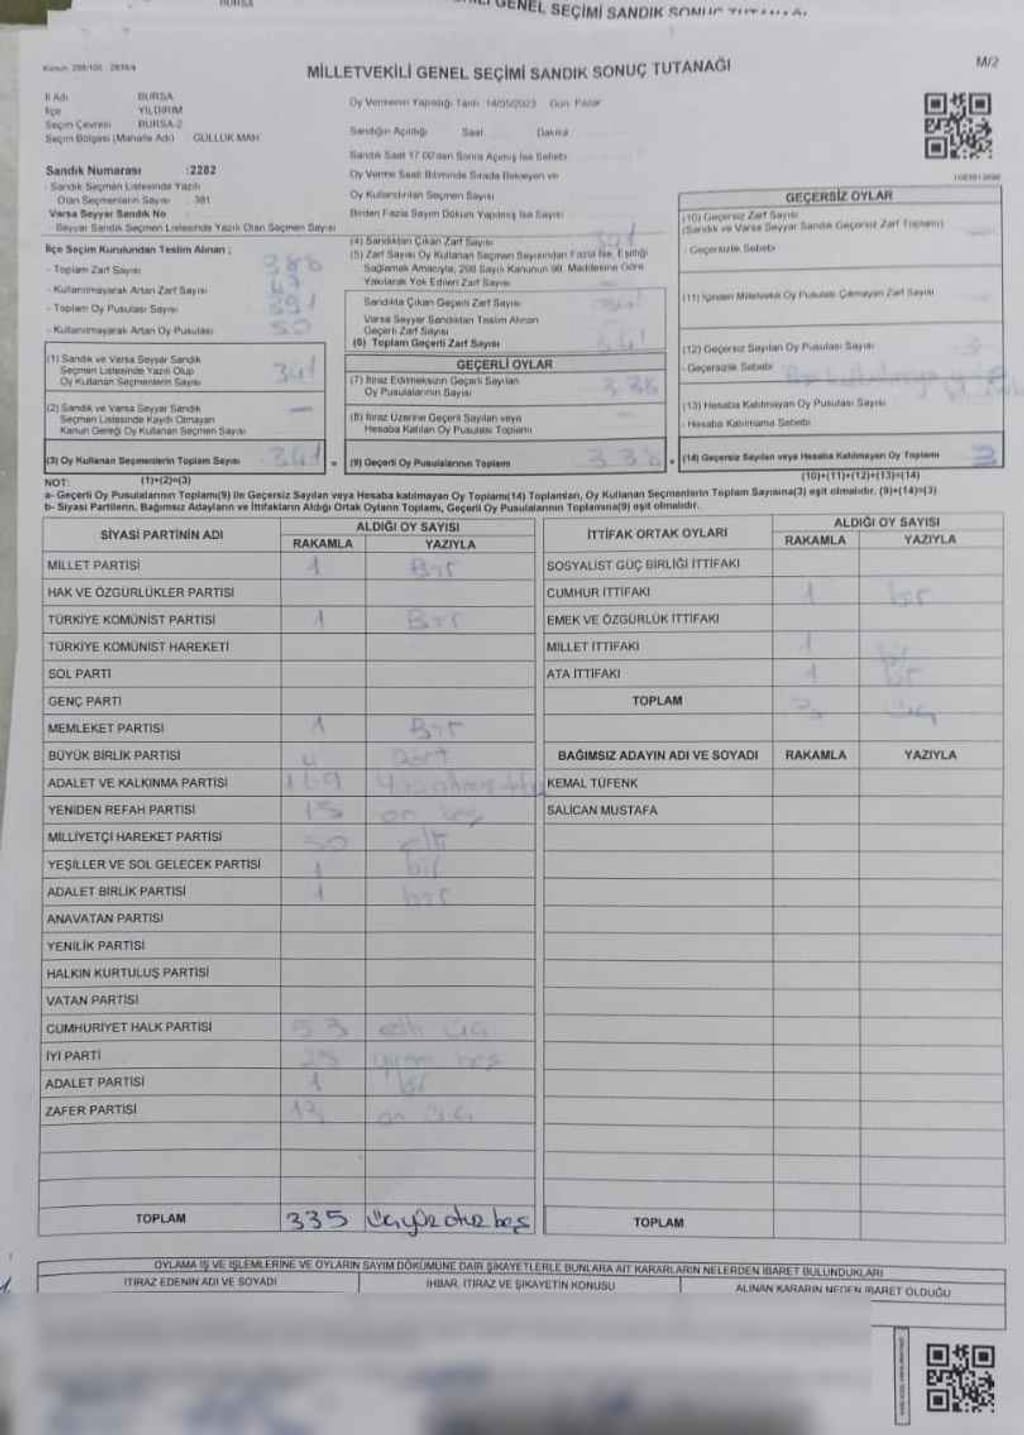 GENEL SEÇİMİ SANDIK SONUÇ
BURSA
Kanun 298/105 - 2839/4
MİLLETVEKİLİ GENEL SEÇİMİ SANDIK SONUÇ TUTANAĞI
M/2
İl Adı BURSA
İlçe YILDIRIM
Seçim Çevresi BURSA-2
Seçim Bölgesi (Mahalle Adı) GÜLLÜK MAH.
Oy Vermenin Yapıldığı Tarih 14/05/2023 Gün Pazar
Sandığın Açıldığı Saat Dakika
Sandık Saat 17.00'den Sonra Açılmış İse Sebebi
Oy Verme Saati Bitiminde Sırada Bekleyen ve
Oy Kullandırılan Seçmen Sayısı
Birden Fazla Sayım Döküm Yapılmış İse Sayısı
Sandık Numarası :2282
- Sandık Seçmen Listesinde Yazılı
Olan Seçmenlerin Sayısı 381
Varsa Seyyar Sandık No
- Seyyar Sandık Seçmen Listesinde Yazılı Olan Seçmen Sayısı
İlçe Seçim Kurulundan Teslim Alınan ;
- Toplam Zarf Sayısı 388
- Kullanılmayarak Artan Zarf Sayısı 47
- Toplam Oy Pusulası Sayısı 391
- Kullanılmayarak Artan Oy Pusulası 50
(1) Sandık ve Varsa Seyyar Sandık
Seçmen Listesinde Yazılı Olup
Oy Kullanan Seçmenlerin Sayısı 341
(2) Sandık ve Varsa Seyyar Sandık
Seçmen Listesinde Kaydı Olmayan
Kanun Gereği Oy Kullanan Seçmen Sayısı —
(3) Oy Kullanan Seçmenlerin Toplam Sayısı 341
(1)+(2)=(3)
(4) Sandıktan Çıkan Zarf Sayısı 341
(5) Zarf Sayısı Oy Kullanan Seçmen Sayısından Fazla İse, Eşitliği
Sağlamak Amacıyla, 298 Sayılı Kanunun 98. Maddesine Göre
Yakılarak Yok Edilen Zarf Sayısı
Sandıkta Çıkan Geçerli Zarf Sayısı 341
Varsa Seyyar Sandıktan Teslim Alınan
Geçerli Zarf Sayısı
(6) Toplam Geçerli Zarf Sayısı 341
GEÇERLİ OYLAR
(7) İtiraz Edilmeksizin Geçerli Sayılan
Oy Pusulalarının Sayısı 338
(8) İtiraz Üzerine Geçerli Sayılan veya
Hesaba Katılan Oy Pusulası Toplamı
(9) Geçerli Oy Pusulalarının Toplamı 338
GEÇERSİZ OYLAR
(10) Geçersiz Zarf Sayısı
(Sandık ve Varsa Seyyar Sandık Geçersiz Zarf Toplamı)
- Geçersizlik Sebebi
(11) İçinden Milletvekili Oy Pusulası Çıkmayan Zarf Sayısı
(12) Geçersiz Sayılan Oy Pusulası Sayısı 3
- Geçersizlik Sebebi
(13) Hesaba Katılmayan Oy Pusulası Sayısı
- Hesaba Katılmama Sebebi
(14) Geçersiz Sayılan veya Hesaba Katılmayan Oy Toplamı 3
(10)+(11)+(12)+(13)=(14)
NOT:
a- Geçerli Oy Pusulalarının Toplamı(9) ile Geçersiz Sayılan veya Hesaba katılmayan Oy Toplamı(14) Toplamları, Oy Kullanan Seçmenlerin Toplam Sayısına(3) eşit olmalıdır. (9)+(14)=(3)
b- Siyasi Partilerin, Bağımsız Adayların ve İttifakların Aldığı Ortak Oyların Toplamı, Geçerli Oy Pusulalarının Toplamına(9) eşit olmalıdır.
SİYASİ PARTİNİN ADI ALDIĞI OY SAYISI
RAKAMLA YAZIYLA
MİLLET PARTİSİ 1 Bir
HAK VE ÖZGÜRLÜKLER PARTİSİ
TÜRKİYE KOMÜNİST PARTİSİ 1 Bir
TÜRKİYE KOMÜNİST HAREKETİ
SOL PARTİ
GENÇ PARTİ
MEMLEKET PARTİSİ 1 Bir
BÜYÜK BİRLİK PARTİSİ 4 Dört
ADALET VE KALKINMA PARTİSİ 169
YENİDEN REFAH PARTİSİ 15 on beş
MİLLİYETÇİ HAREKET PARTİSİ 50 elli
YEŞİLLER VE SOL GELECEK PARTİSİ 1 bir
ADALET BİRLİK PARTİSİ 1 bir
ANAVATAN PARTİSİ
YENİLİK PARTİSİ
HALKIN KURTULUŞ PARTİSİ
VATAN PARTİSİ
CUMHURİYET HALK PARTİSİ 53 elli üç
İYİ PARTİ 25 yirmi beş
ADALET PARTİSİ 1 bir
ZAFER PARTİSİ 13 on üç
TOPLAM 335 üçyüz otuz beş
İTTİFAK ORTAK OYLARI ALDIĞI OY SAYISI
RAKAMLA YAZIYLA
SOSYALİST GÜÇ BİRLİĞİ İTTİFAKI
CUMHUR İTTİFAKI 1 bir
EMEK VE ÖZGÜRLÜK İTTİFAKI
MİLLET İTTİFAKI 1 bir
ATA İTTİFAKI 1 bir
TOPLAM 3 üç
BAĞIMSIZ ADAYIN ADI VE SOYADI RAKAMLA YAZIYLA
KEMAL TÜFENK
SALİCAN MUSTAFA
TOPLAM
OYLAMA İŞ VE İŞLEMLERİNE VE OYLARIN SAYIM DÖKÜMÜNE DAİR ŞİKAYETLERLE BUNLARA AİT KARARLARIN NELERDEN İBARET BULUNDUKLARI
İTİRAZ EDENİN ADI VE SOYADI İHBAR, İTİRAZ VE ŞİKAYETİN KONUSU ALINAN KARARIN NEDEN İBARET OLDUĞU